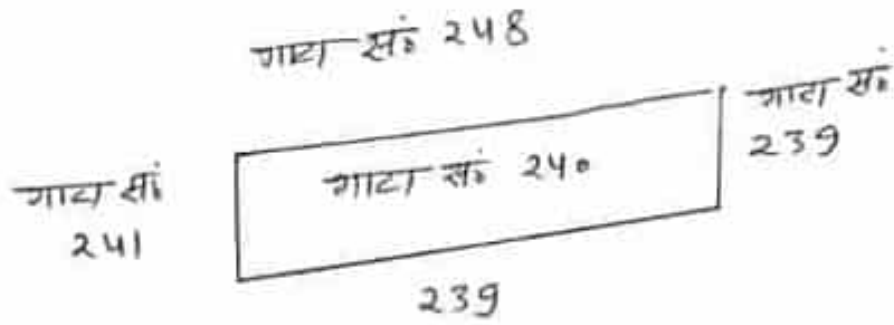 गाटा सं० 248
गाटा सं०
239
गाटा सं० 240
गाटा सं०
241
239